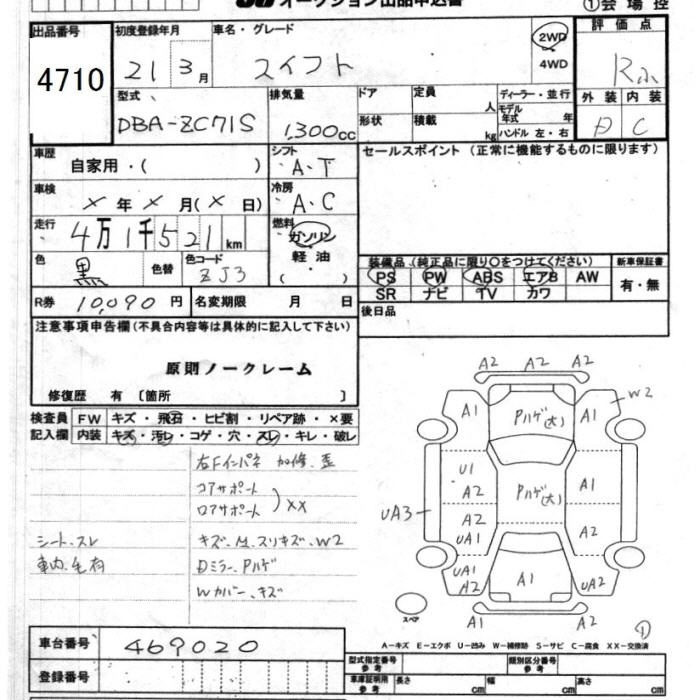 オークション出品申込書
①会場控
出品番号 4710
初度登録年月 21 3月
車名・グレード スイフト
2WD
4WD
評価点 R
外装 内装
D C
型式 DBA-ZC71S
排気量 1,300cc
ドア 定員 人
形状 積載 kg
ディーラー・並行
モデル年式 年
ハンドル 左・右
車歴 自家用・( )
シフト A・T
セールスポイント (正常に機能するものに限ります)
車検 × 年 × 月(× 日)
冷房 A・C
走行 4万1千521km
燃料 ガソリン
軽油
( )
色 黒 色替 色コード ZJ3
装備品(純正品に限り○をつけてください)
新車保証書
PS PW ABS エアB AW 有・無
SR ナビ TV カワ
R券 10,090円 名変期限 月 日
後日品
注意事項申告欄(不具合内容等は具体的に記入して下さい)
原則ノークレーム
修復歴 有〔箇所 〕
検査員 FW キズ・飛石・ヒビ割・リペア跡・×要
記入欄 内装 キズ・汚レ・コゲ・穴・スレ・キレ・破レ
右Fインパネ 加修、歪
コアサポート
ロアサポート ) XX
シート、スレ
キズ、M、スリキズ、W2
車内、毛有
Dミラー、Pハゲ
Wカバー、キズ
A2 A2 A2
W2
A1 Pハゲ(大) A1
U1
A2 Pハゲ(大) A1
UA3
A2
UA1 A2
UA1
A2 A1 UA2
A2 A2
スペア
①
A-キズ E-エクボ U-凹み W-補修跡 S-サビ C-腐食 XX-交換済
車台番号 469020
登録番号
型式指定番号 参考
類別区分番号 参考
車庫証明用 参考 長さ cm 幅 cm 高さ cm